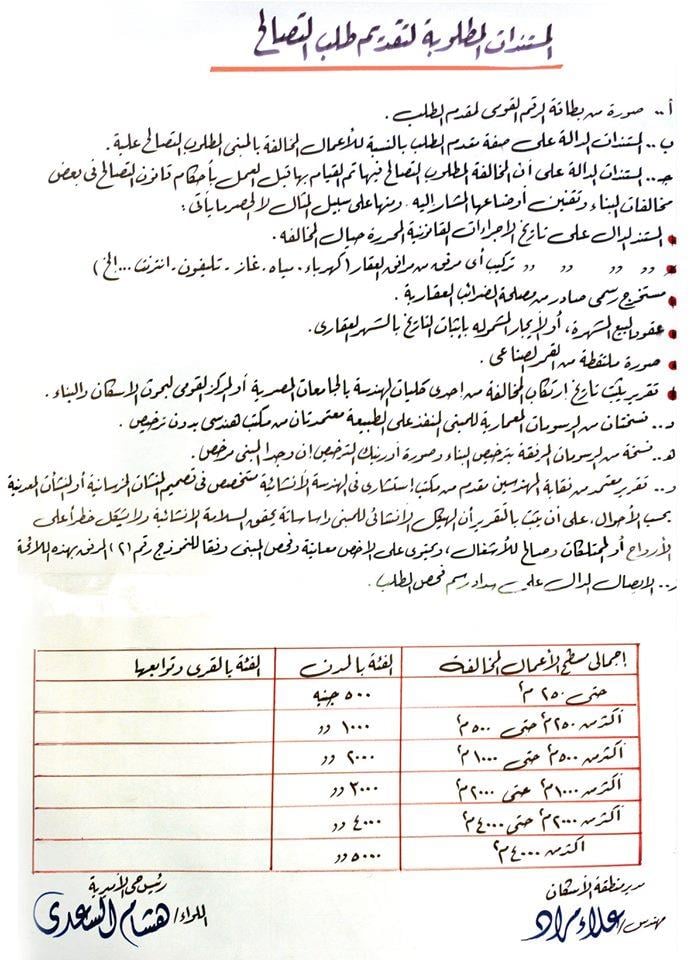 المستندات المطلوبة لتقديم طلب التصالح
أ.. صورة من بطاقة الرقم القومى لمقدم الطلب .
ب.. المستندات الدالة على صفة مقدم الطلب بالنسبة للأعمال المخالفة بالمبنى المطلوب التصالح علية .
جـ.. المستندات الدالة على أن المخالفة المطلوب التصالح فيها تم القيام بها قبل العمل بأحكام قانون التصالح فى بعض
مخالفات البناء وتقنين أوضاعها المشار إليه . ومنها على سبيل المثال لا الحصر ما يأتى :
المستند الدال على تاريخ الإجراءات القانونية المحررة حيال المخالفه .
〃 〃 〃 〃 تركيب أى مرفق من مرافق العقار ( كهرباء . مياه . غاز . تليفون . انترنت ... إلخ )
مستخرج رسمى صادر من مصلحة الضرائب العقارية .
عقود البيع المشهرة ، أو الإيجار المشموله بإثبات التاريخ بالشهر العقارى .
صورة ملتقطة من القمر الصناعى .
تقرير يثبت تاريخ إرتكاب المخالفة من احدى كليات الهندسة بالجامعات المصرية أو المركز القومى لبحوث الاسكان والبناء .
د.. نسختان من الرسومات المعمارية للمبنى المنفذ على الطبيعة معتمدتان من مكتب هندسى بدون ترخيص .
هـ.. نسخة من الرسومات المرفقة بترخيص البناء وصورة أورنيك الترخيص إن وجد المبنى مرخص .
و.. تقرير معتمد من نقابة المهندسين مقدم من مكتب إستشارى فى الهندسة الأنشائية متخصص فى تصميم المنشآت الخرسانية أو المنشآت المعدنية
بحسب الأحوال ، على أن يثبت بالتقرير أن الهيكل الإنشائى للمبنى وأساساته يحقق السلامة الإنشائية ولا يشكل خطراً على
الأرواح أو الممتلكات وصالح للأشغال ، ويحتوى على الأخص معاينة وفحص المبنى وفقا للنموذج رقم (٢) المرفق بهذه اللائحة
ز.. الايصال الدال على سداد رسم فحص الطلب .
إجمالى مسطح الأعمال المخالفة الفئة بالمدن الفئة بالقرى وتوابعها
حتى ٢٥٠ م٢ ٥٠٠ جنيه
أكثر من ٢٥٠ م٢ حتى ٥٠٠ م٢ ١٠٠٠ 〃
أكثر من ٥٠٠ م٢ حتى ١٠٠٠ م٢ ٢٠٠٠ 〃
أكثر من ١٠٠٠ م٢ حتى ٢٠٠٠ م٢ ٣٠٠٠ 〃
أكثر من ٢٠٠٠ م٢ حتى ٤٠٠٠ م٢ ٤٠٠٠ 〃
أكثر من ٤٠٠٠ م٢ ٥٠٠٠ 〃
مدير منطقة الأسكان
مهندس / علاء مراد
رئيس حى الأميرية
اللواء / هشام السعدى